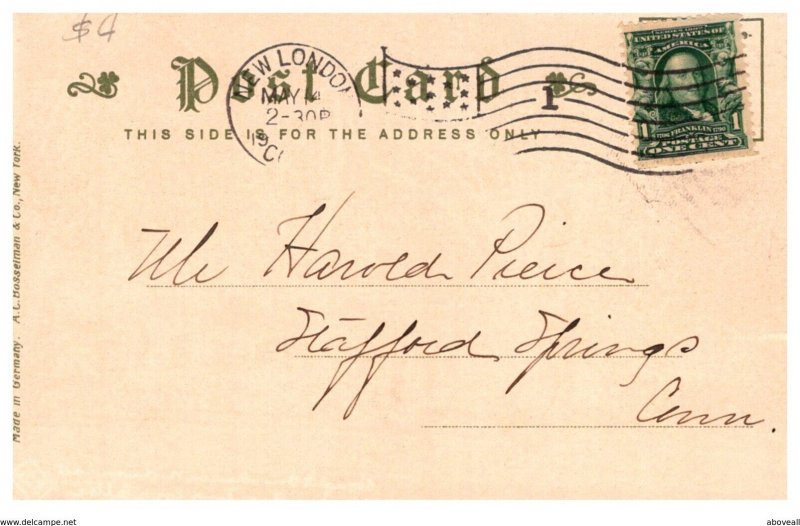 $4
Post Card
THIS SIDE IS FOR THE ADDRESS ONLY
NEW LONDON
MAY 14
2-30P
1
SERIES 1902
UNITED STATES OF
AMERICA
FRANKLIN 1790
1 POSTAGE 1
ONE CENT
Harold Pierce
Stafford Springs
Conn.
Made in Germany. A.C. Bosselman & Co., New York.
www.hipstamp.com
aboveall